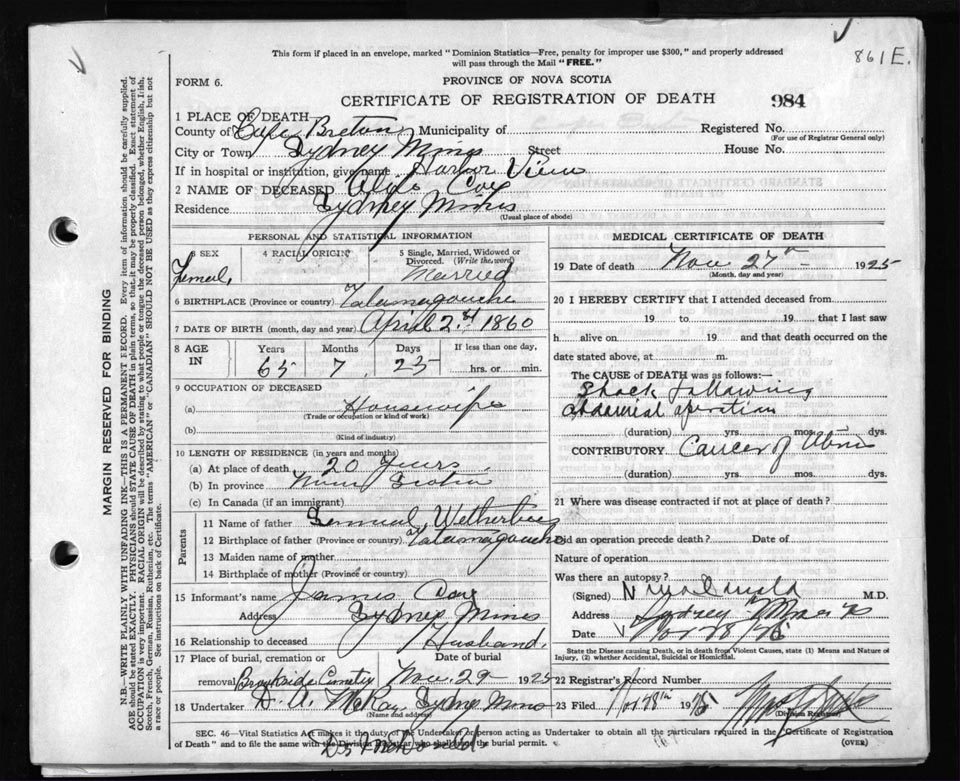 861E.
This form if placed in an envelope, marked "Dominion Statistics—Free, penalty for improper use $300," and properly addressed
will pass through the Mail "FREE."
FORM 6.
PROVINCE OF NOVA SCOTIA
CERTIFICATE OF REGISTRATION OF DEATH 984
1 PLACE OF DEATH
County of Cape Breton Municipality of Registered No.
(For use of Registrar General only)
City or Town Sydney Mines Street House No.
If in hospital or institution, give name Harbor View
2 NAME OF DECEASED Cox
Residence Sydney Mines
(Usual place of abode)
PERSONAL AND STATISTICAL INFORMATION
3 SEX 4 RACIAL ORIGIN 5 Single, Married, Widowed or
Divorced. (Write the word)
Female Married
6 BIRTHPLACE (Province or country) Tatamagouche
7 DATE OF BIRTH (month, day and year) April 2nd 1860
8 AGE IN Years Months Days If less than one day,
65 7 25 hrs. or min.
9 OCCUPATION OF DECEASED
(a) Housewife
(Trade or occupation or kind of work)
(b)
(Kind of industry)
10 LENGTH OF RESIDENCE (in years and months)
(a) At place of death 20 years
(b) In province Nova Scotia
(c) In Canada (if an immigrant)
Parents
11 Name of father Samuel Wetherbee
12 Birthplace of father (Province or country) Tatamagouche
13 Maiden name of mother
14 Birthplace of mother (Province or country)
15 Informant's name James Cox
Address Sydney Mines
16 Relationship to deceased Husband.
17 Place of burial, cremation or Date of burial
removal Brookside Cemetry Nov. 29 1925
18 Undertaker D. A. McKay Sydney Mines
(Name and address)
MEDICAL CERTIFICATE OF DEATH
19 Date of death Nov 27th 1925
(Month, day and year)
20 I HEREBY CERTIFY that I attended deceased from
19 to 19 that I last saw
h alive on 19 and that death occurred on the
date stated above, at m.
The CAUSE of DEATH was as follows:—
Shock following
abdominal operation
(duration) yrs. mos. dys.
CONTRIBUTORY Cancer of
(duration) yrs. mos. dys.
21 Where was disease contracted if not at place of death?
Did an operation precede death? Date of
Nature of operation
Was there an autopsy?
(Signed) N McDonald M.D.
Address Sydney Mines
Date Nov 28 25
State the Disease causing Death, or in death from Violent Causes, state (1) Means and Nature of
Injury, (2) whether Accidental, Suicidal or Homicidal.
22 Registrar's Record Number
23 Filed Nov 28th 1925
(Division Registrar)
SEC. 46—Vital Statistics Act makes it the duty of the Undertaker or person acting as Undertaker to obtain all the particulars required in the Certificate of Registration
of Death" and to file the same with the Division Registrar who shall grant the burial permit. (OVER)
Dr McDonald
MARGIN RESERVED FOR BINDING
N.B.—WRITE PLAINLY WITH UNFADING INK—THIS IS A PERMANENT RECORD. Every item of information should be carefully supplied.
AGE should be stated EXACTLY. PHYSICIANS should STATE CAUSE OF DEATH in plain terms, so that it may be properly classified. Exact statement of
OCCUPATION is very important. RACIAL ORIGIN will be described by stating to what people or tongue the deceased person belonged, whether English, Irish,
Scotch, French, German, Russian, Ruthenian, etc. The terms "AMERICAN" or "CANADIAN" SHOULD NOT BE USED as they express citizenship but not
a race or people. See instructions on back of Certificate.